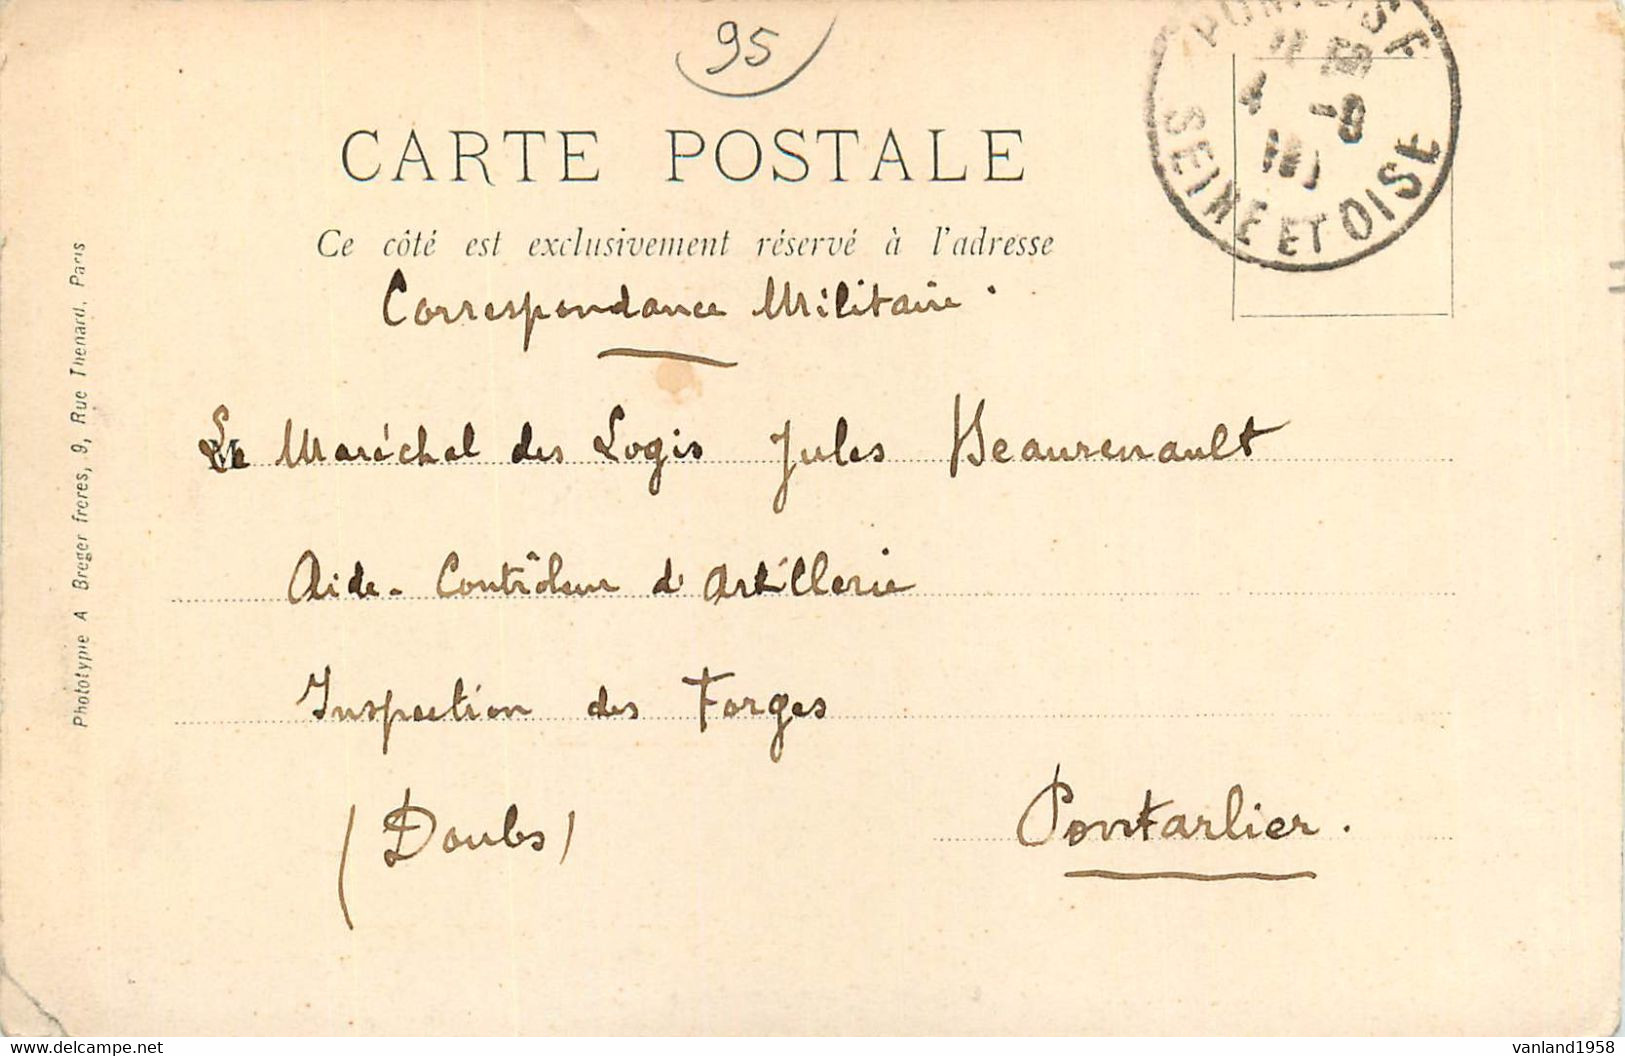 95
CARTE POSTALE
Ce côté est exclusivement réservé à l'adresse
Correspondance Militaire.
Le Maréchal des Logis Jules Beaurenault
Aide-Contrôleur d'Artillerie
Inspection des Forges
(Doubs) Pontarlier.
Phototypie A Breger freres, 9, Rue Thenard. Paris
PONTOISE
4 -9
SEINE ET OISE
vanland1958